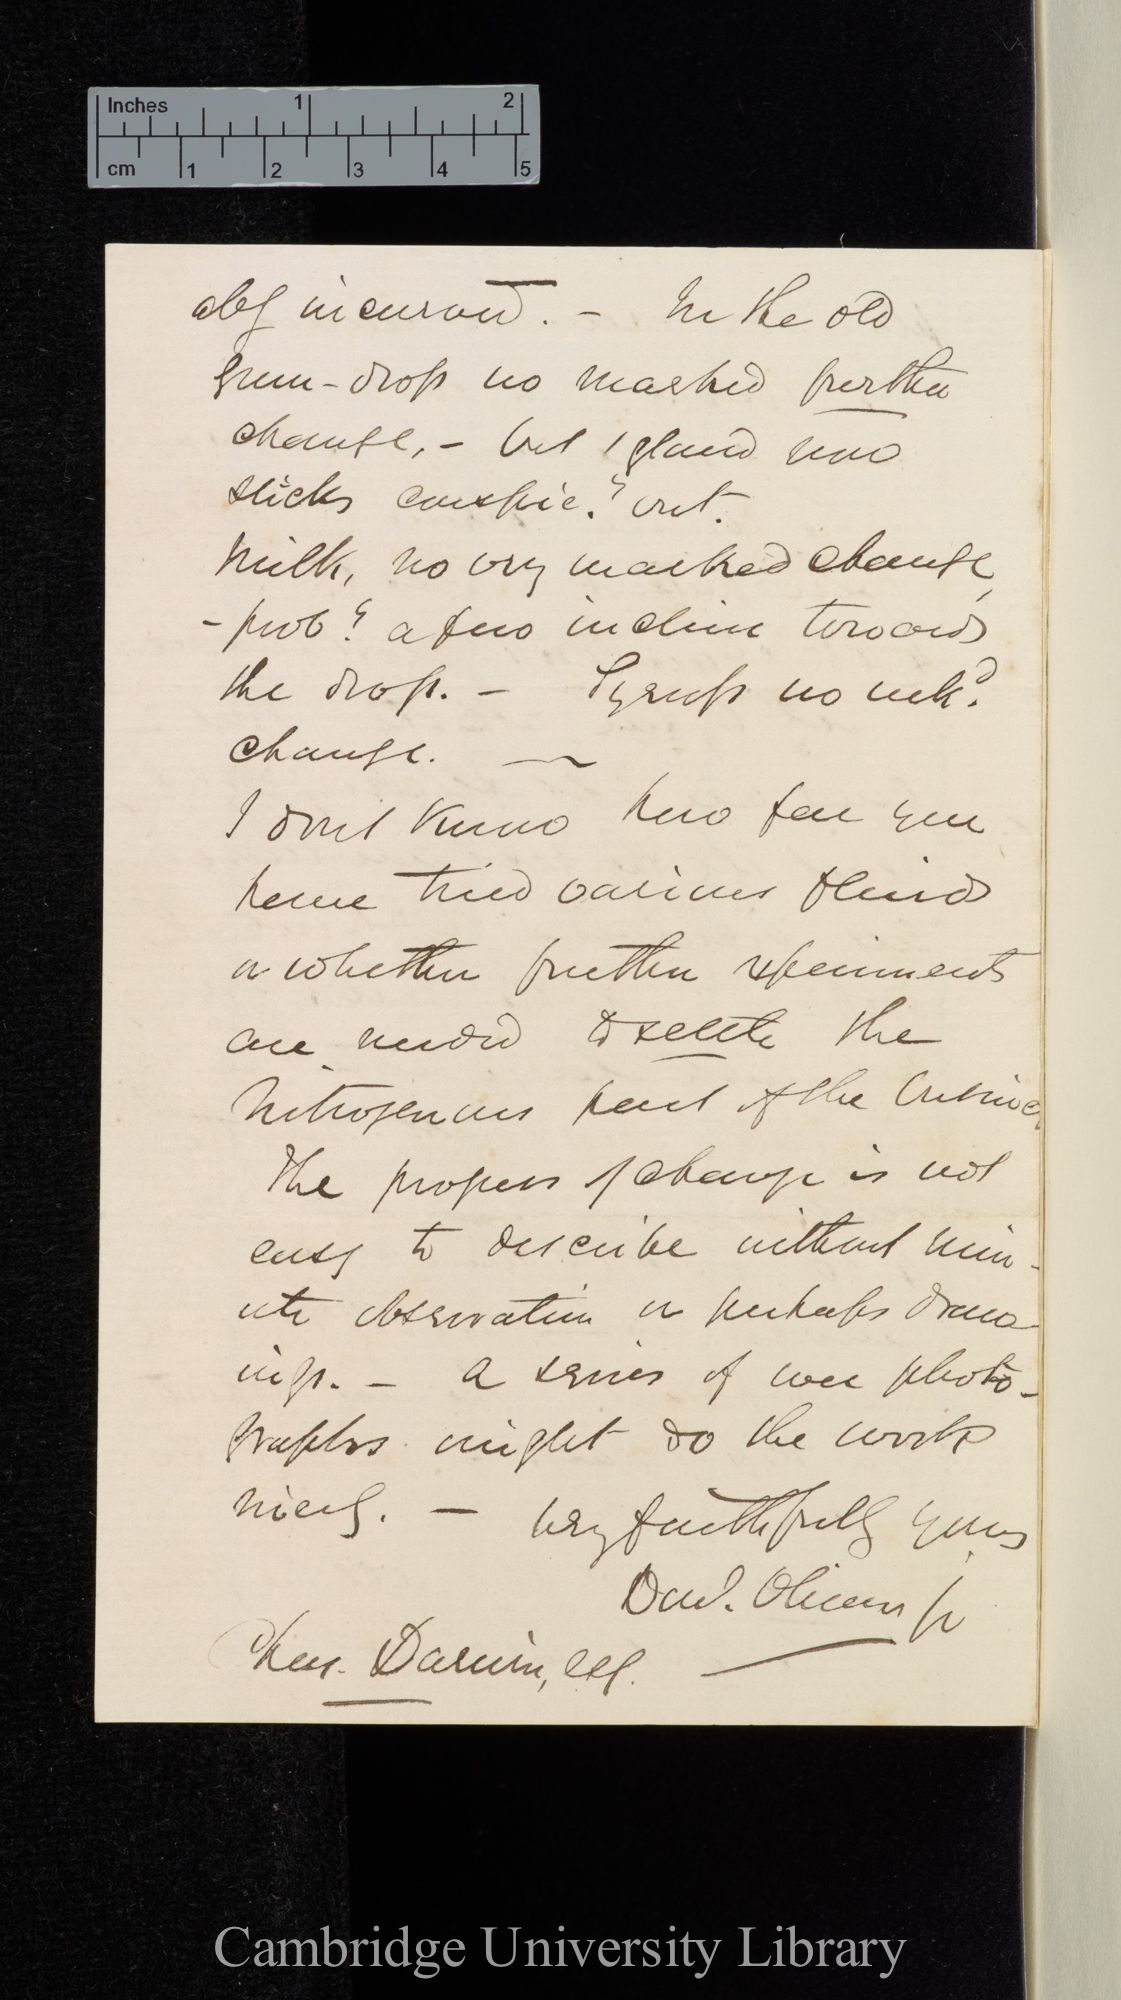 Inches 1 2
cm 1 2 3 4 5
ably incurved. – In the old
Gum-drop no marked further
change, – but 1 gland now
sticks conspic.y out.
Milk, no very marked change,
– prob.y a few incline towards
the drop. – Syrup no mk.d
change. —
I don't know how far you
have tried various fluids
or whether further experiments
are needed to settle the
Nitrogenous part of the business
The progress of change is not
easy to describe without min-
ute observation or perhaps draw-
ings. – A series of wee photo-
graphs might do the work
nicely. – Very faithfully yours
Danl. Oliver Jr
Chas. Darwin, Esq.
Cambridge University Library